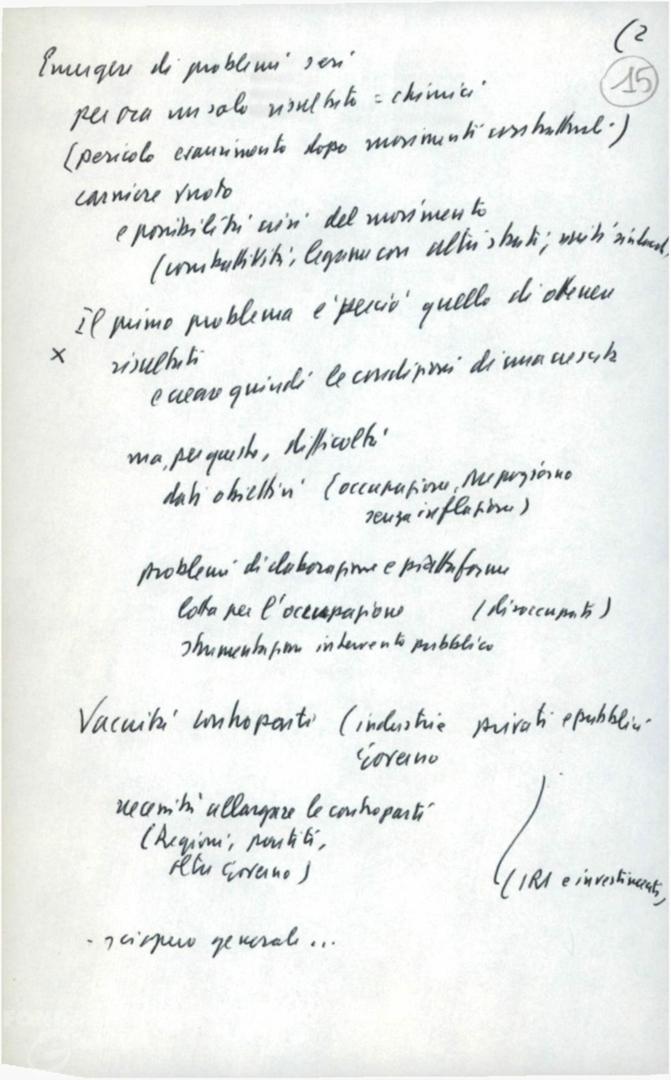 (2
15
Emergere di problemi seri
per ora un solo risultato = chimici
(pericolo esaurimento dopo movimenti contrattual.)
carniere vuoto
e possibilità crisi del movimento
(combattività, legame con altri strati; unità sindacal.
Il primo problema è perciò quello di ottenere
x risultati
e creare quindi le condizioni di una crescita
ma, per questo, difficoltà
dati obiettivi (occupazione, Mezzogiorno
senza inflazione)
problemi di elaborazione e piattaforme
lotta per l'occupazione (disoccupati)
strumentazione intervento pubblico
Vacuità controparti (industrie private e pubblici
Governo
necessità allargare le controparti
(Regioni, partiti,
oltre Governo)
(IRI e investimenti,
- sciopero generale...